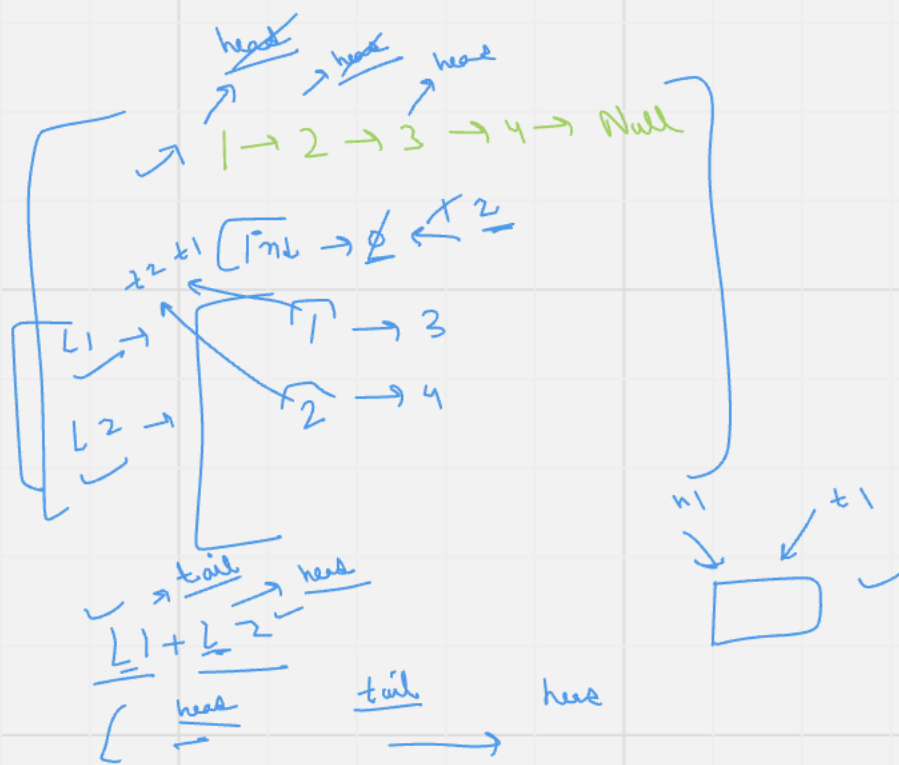 head head head
1 → 2 → 3 → 4 → Null
t2 t1 int → 0 ← 1 2
L1 → 1 → 3
L2 → 2 → 4
h1 t1
tail head
L1 + L2
head tail head